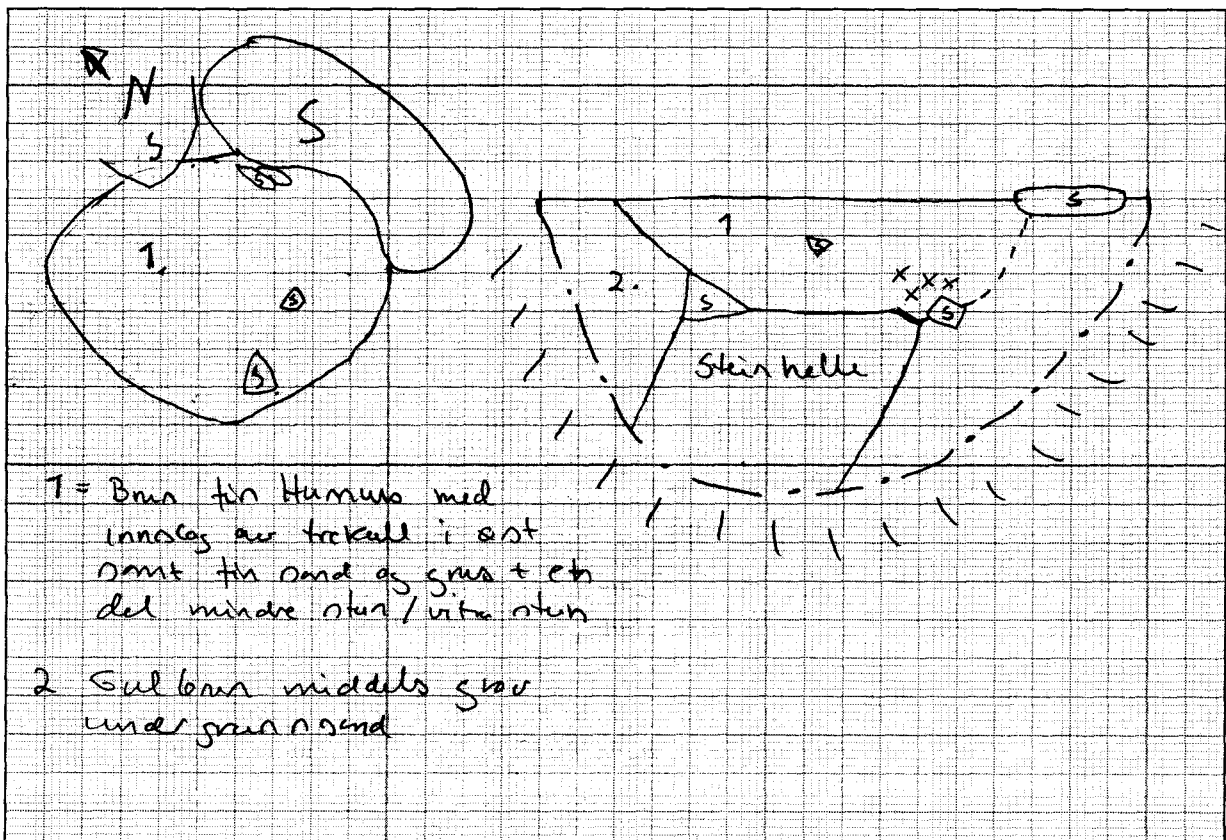 N
S
S
S
1.
S
S
1
S
S
2.
S
x x x
x
S
Steinhelle
1 = Brun fin Humus med
innslag av trekull i øst
samt fin sand og grus + en
del mindre stein /
2 Gulbrun middels grov
undergrunnsand